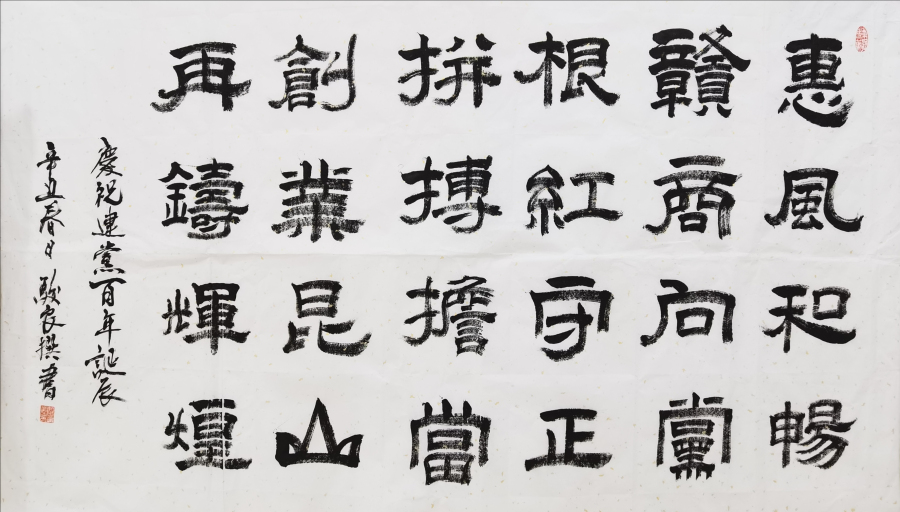 惠風和暢
贛商向黨
根紅守正
拼搏擔當
創業昆山
再鑄輝煌
慶祝建黨百年誕辰
辛丑春月 毅农撰書